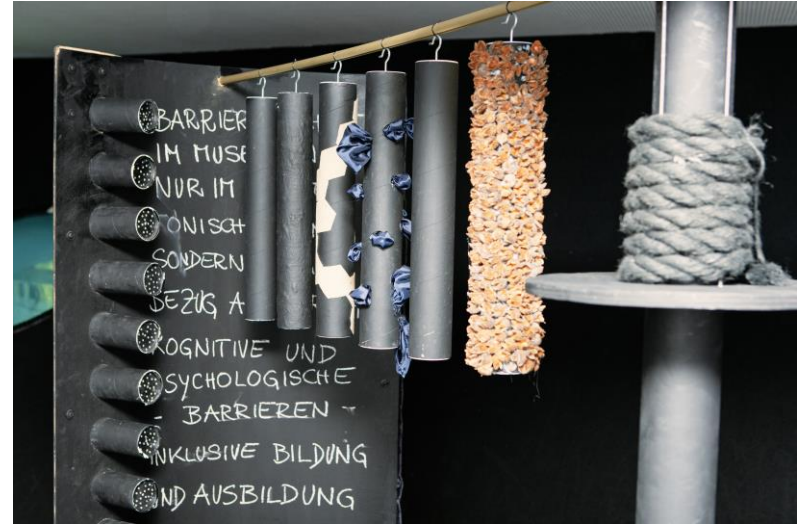 BARRIER
IM MUSE
NUR IM
TONISCH
SONDERN
BEZUG A
KOGNITIVE UND
PSYCHOLOGISCHE
- BARRIEREN -
INKLUSIVE BILDUNG
UND AUSBILDUNG